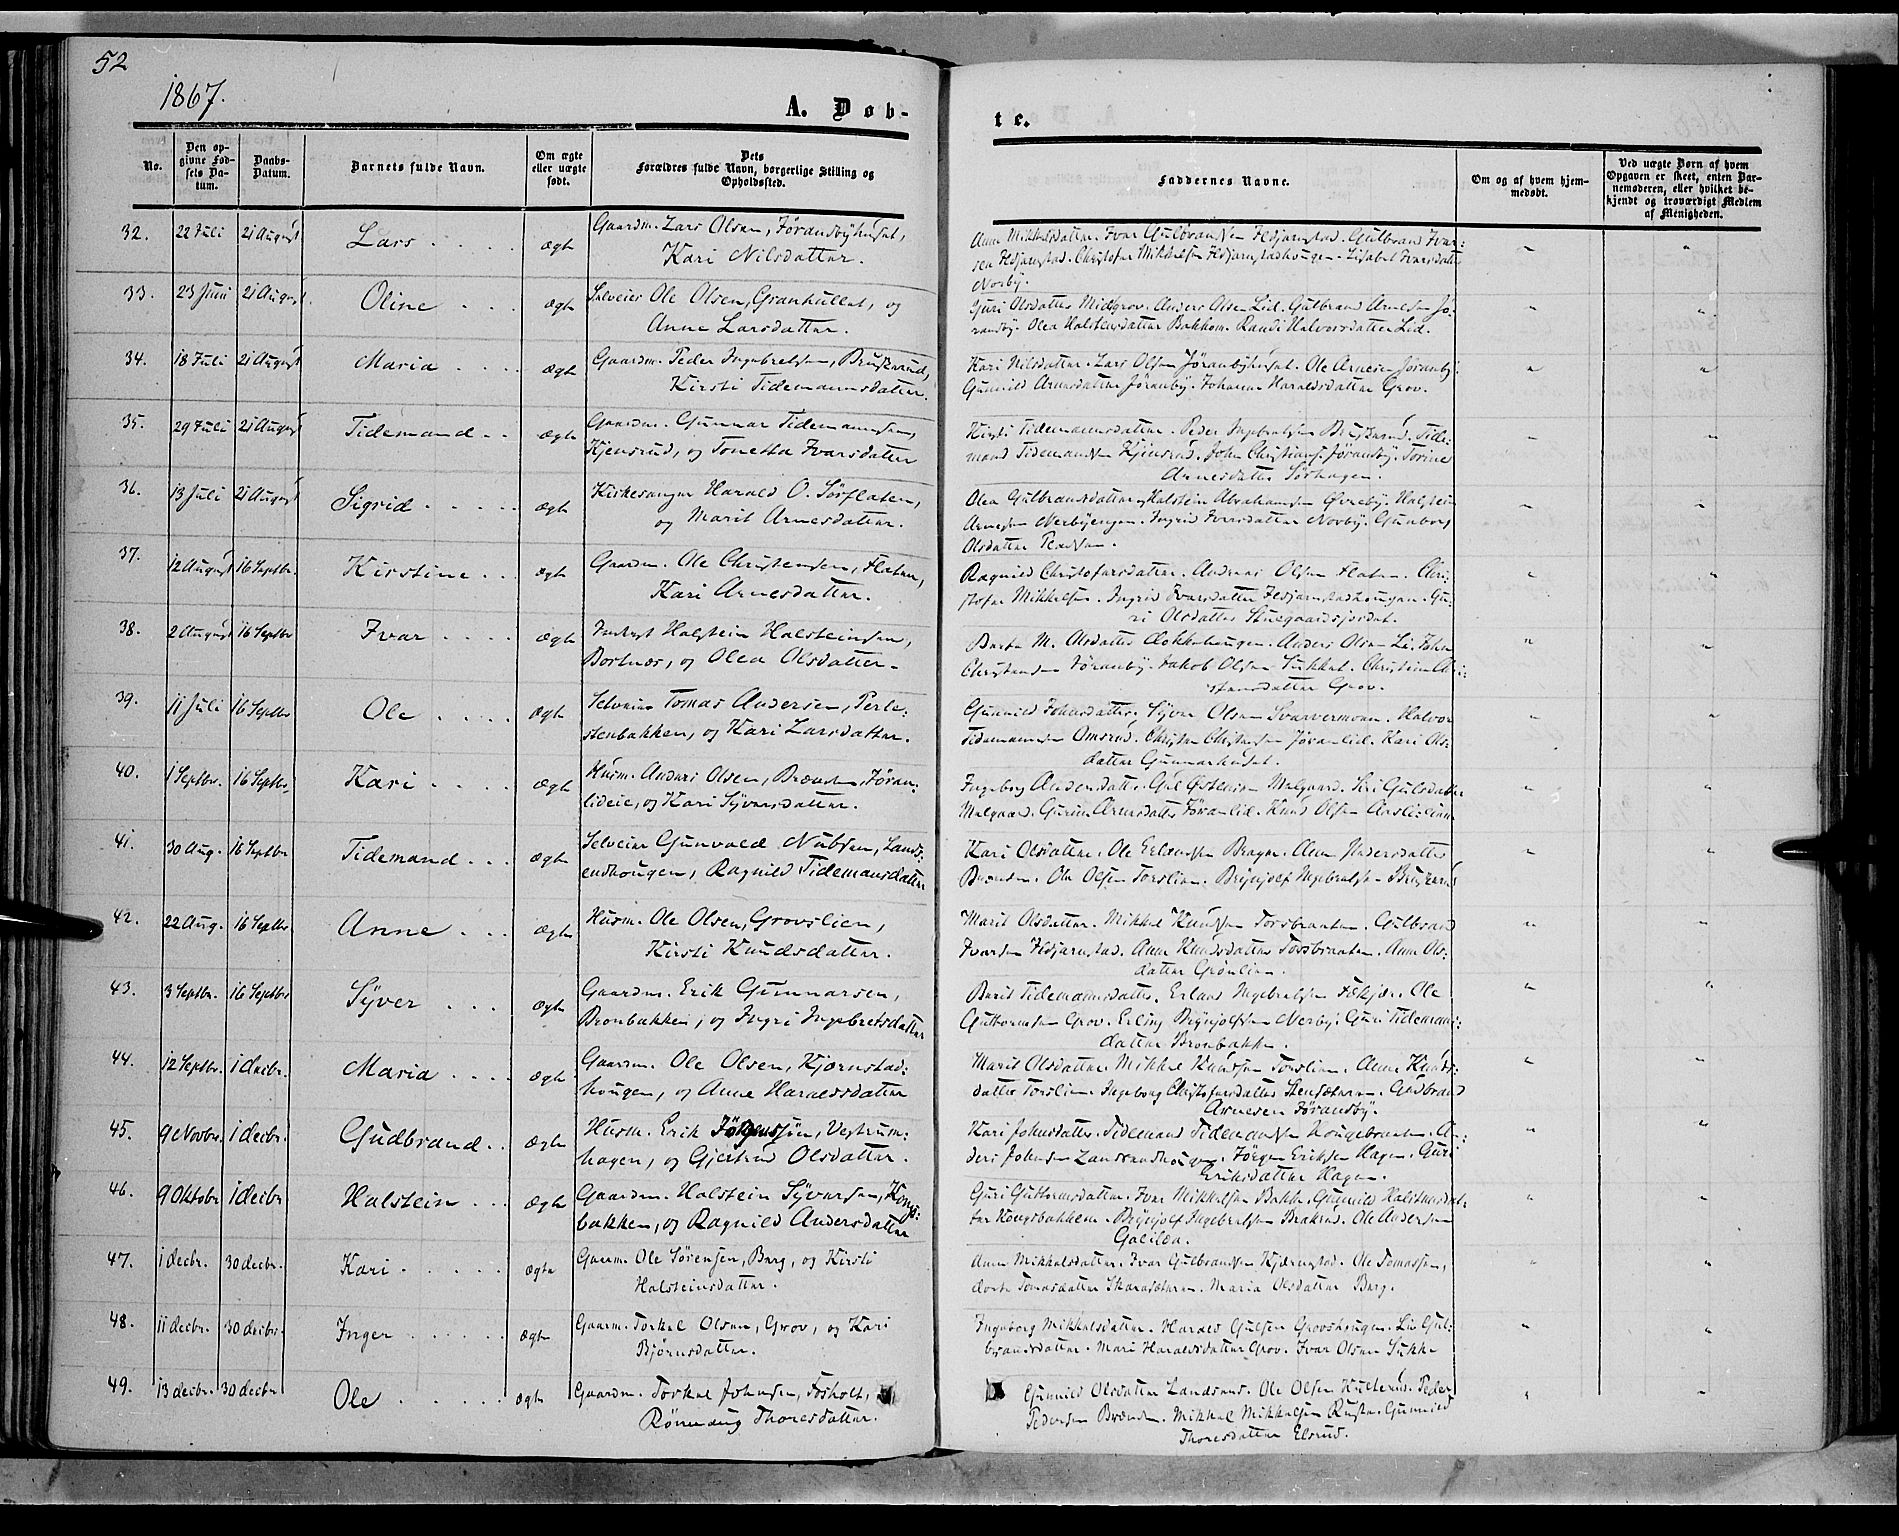 52
1867.
A. Døb-
te.
No.
Den opgivne Fødsels Datum.
Daabs-Datum.
Barnets fulde Navn.
Om ægte eller uægte født.
Dets Forældres fulde Navn, borgerlige Stilling og Opholdssted.
Faddernes Navne.
Om og af hvem hjemmedøbt.
Ved uægte Børn af hvem Opgaven er skeet, enten Barnemoderen, eller hvilket bekjendt og troværdigt Medlem af Menigheden.
32. 22 Juli 21 August Lars ægte Gaardm. Lars Olsen, Jøransbyhuset,
Kari Nilsdatter.
Anne Mikkelsdatter. Ivar Gulbrandsen Kjærnstad. Gulbrand Ivar-
sen Kjærnstad. Christofer Mikkelsen Kjærnstadhougen. Lisabet Ivarsdatter
Norby.
33. 23 Juni 21 August Oline ægte Selveier Ole Olsen, Granhullet, og
Anne Larsdatter.
Guri Olsdatter Midtgrov. Anders Olsen Lid. Gulbrand Arnesen Jø-
ransby. Olea Halstensdatter Bakkom. Randi Halvorsdatter Lid.
34. 18 Juli 21 August Maria ægte Gaardm. Peder Ingebretsen, Bruskerud,
Kirsti Tidemannsdatter.
Kari Nilsdatter. Lars Olsen Jøranbyhuset. Ole Arnesen Jøranby.
Gunnild Arnesdatter Jøranby. Johanne Haraldsdatter Grov.
35. 29 Juli 21 August Tidemand ægte Gaardm. Gunnar Tidemannsen,
Kjensrud, og Tonetta Ivarsdatter
Kirsti Tidemannsdatter. Peder Ingebretsen Bruskerud. Tide-
mand Tidemandsen Kjensrud. John Christians. Jøransby. Torine
Arnesdatter Sørhagen.
36. 13 Juli 21 August Sigrid ægte Kirkesanger Harald O. Sørflaten,
og Marit Arnesdatter.
Olea Gulbransdatter, Halstein Abrahamsen Øvreby. Halstein
Arnesen Nerbyengen. Ingrid Ivarsdatter Norby. Gunbor
Olsdatter
37. 12 August 16 Septbr. Kirstine ægte Gaardm. Ole Christensen, Flaten,
Kari Arnesdatter.
Ragnild Christofersdatter. Andreas Olsen Flaten. Chri-
stofer Mikkelsen. Ingrid Ivarsdatter Kjærnstadhougen. Gu-
ri Olsdatter Stuegaardsjordet.
38. 2 August 16 Septbr Ivar ægte Halstein Halsteinsen,
Bortnæs, og Olea Olsdatter.
Berte M. Olsdatter Dokkehaugen. Anders Olsen Li. John
Christensen Jøranby. Jakob Olsen Sukket. Christine Chri-
stensdatter Grov.
39. 11 Juli 16 Septbr Ole ægte Selveier Tomas Andersen, Perle-
stenbakken, og Kari Larsdatter.
Gunnild Johnsdatter. Syver Olsen Svarvermoen. Halvor
Tidemannsen Omsrud. Christen Christensen Jøranlid. Kari Ols-
datter Gunnarhuset.
40. 1 Septbr. 16 Septbr. Kari ægte Husm. Anders Olsen, Brænden, Jøran-
lideie, og Kari Syversdatter.
Ingeborg Andersdatter. Gul Østensen Melgaard. Siri Gulsdatter
Melgaard. Gurine Arnesdatter Jøranlid. Knud Olsen
41. 30 Aug. 16 Septbr Tidemand ægte Selveier Gunvald Nubsen, Lands-
endhougen, Ragnild Tidemansdatter
Kari Olsdatter. Ole Erlandsen Bragen. Anne Andersdatter
Brænden. Ole Olsen Torslien. Brynjolf Ingebretsen Bruskerud
42. 22 Aug. 16 Septbr. Anne ægte Husm. Ole Olsen, Grovslien,
Kirsti Knudsdatter.
Marit Olsdatter. Mikkel Knudsen Torsbraaten. Gulbrand
Ivarsen Kjærnstad. Anne Knudsdatter Torsbraaten. Anne Ols-
datter Grønlien.
43. 3 Septbr. 16 Septbr Syver ægte Gaardm. Erik Gunnarsen,
Bronbakken, og Ingri Ingebretsdatter
Berit Tidemannsdatter. Erland Ingebretsen Fekjær. Ole
Guttormsen Grov. Erling Brynjolfsen Nerby. Guri Tideman-
datter Bronbakken.
44. 12 Septbr. 1 decbr. Maria ægte Gaardm. Ole Olsen, Kjærnstad-
hougen, og Anne Haraldsdatter
Marit Olsdatter. Mikkel Knudsen Torslien. Anne Knuds-
datter Torslien. Ingeborg Christofersdatter Stensæteren. Gudbrand
Arnesen Jøransby.
45. 9 Novbr. 1 decbr. Gudbrand ægte Husm. Erik Jørgensen, Vestrum-
hagen, og Gjertrud Olsdatter.
Kari Johnsdatter. Tidemand Tidemandsen Hougebraaten. An-
ders Johnsen Landsendhougen. Jørgen Eriksen Hagen. Guri
Eriksdatter Hagen.
46. 9 Oktobr 1 decbr Halstein ægte Gaardm. Halstein Syversen, Kongs-
bakken, og Ragnild Andersdatter
Guri Guttormsdatter. Ivar Mikkelsen Bakke. Gunild Halstensdat-
ter Kongsbakken. Brynjolf Ingebretsen Brakrud. Ole Andersen
Galilea.
47. 1 decbr. 30 decbr. Kari ægte Gaarm. Ole Sørensen, Berg, og Kirsti
Halsteinsdatter.
Anne Mikkelsdatter. Ivar Gulbrandsen Kjærnstad. Ole Tomassen,
dorte Tomasdatter Skarasæteren. Maria Olsdatter Berg.
48. 11 decbr. 30 decbr. Inger ægte Gaarm. Torkel Olsen, Grov, og Kari
Bjørnsdatter.
Ingeborg Mikkelsdatter. Harald Gulsen Grovshougen. Liv Gul-
bransdatter. Mari Haraldsdatter Grov. Ivar Olsen Sukke
49. 13 decbr. 30 decbr Ole ægte Gaardm. Torkel Johnsen, Fosholt,
Rønnaug Thoresdatter.
Gunnild Olsdatter Landsend. Ole Olsen Hulterud. Peder
Pedersen Brænden. Mikkel Mikkelsen Rustø. Gunnild
Thoresdatter Elsrud.